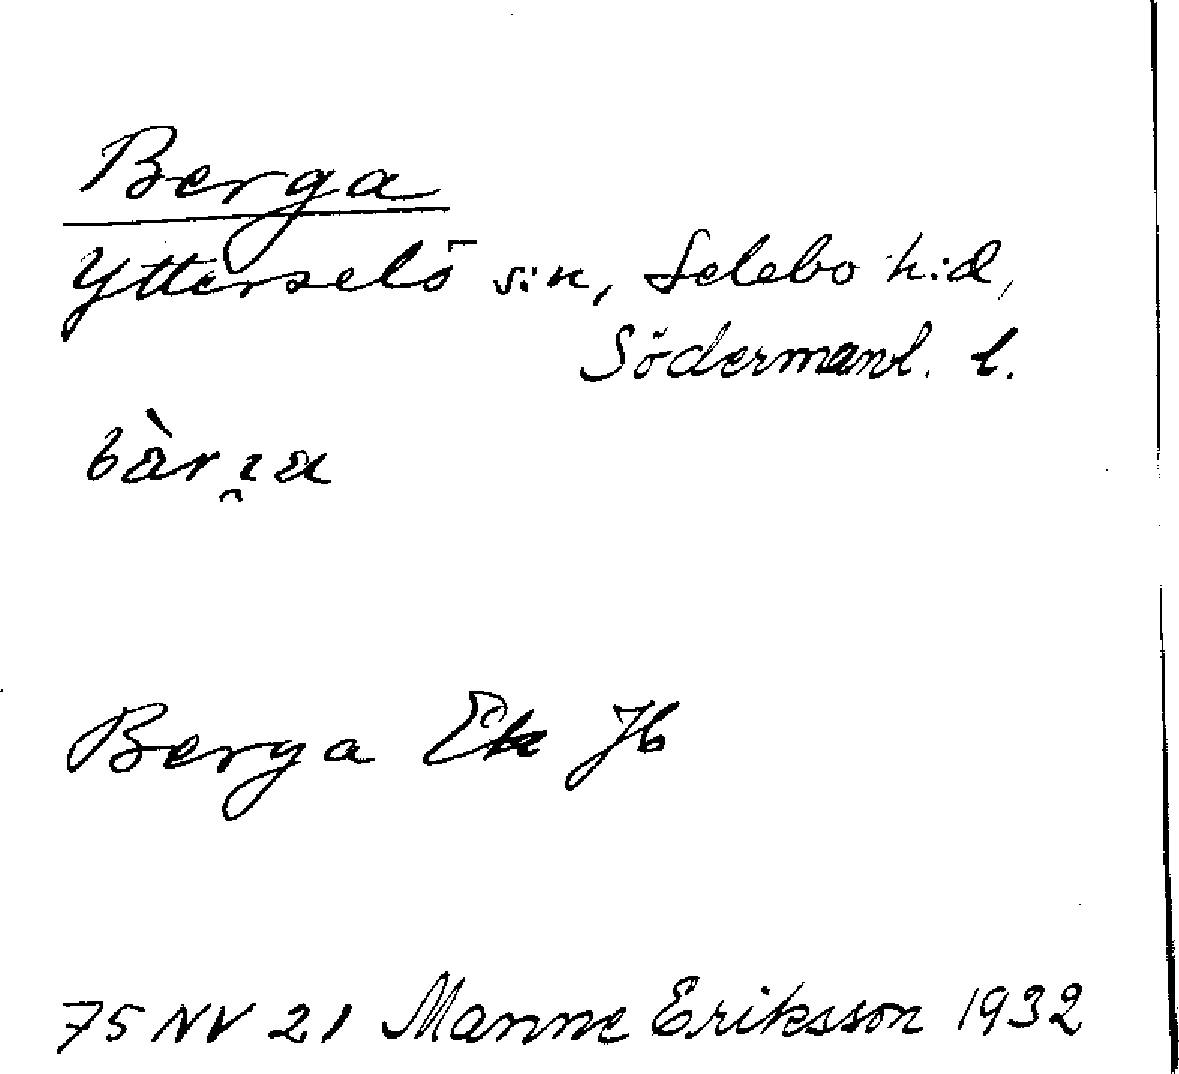 Berga
Ytterselö s:n, Selebo h:d,
Södermanl. l.
bàrɪ̯a
Berga Ek Jb
75 NV 21 Manne Eriksson 1932